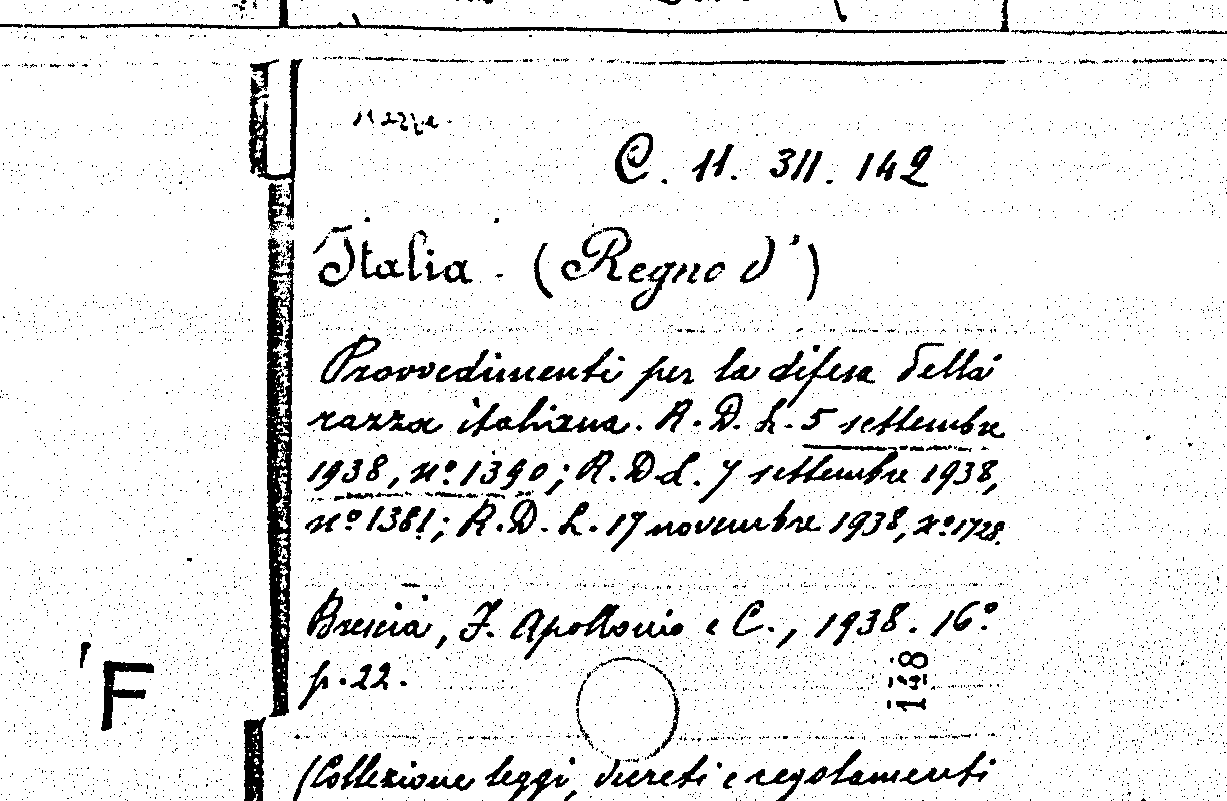 C. 11. 311. 142
Italia. (Regno d')
Provvedimenti per la difesa della
razza italiana. R. D. L. 5 settembre
1938, nº. 1390; R. D. L. 7 settembre 1938,
nº 1381; R. D. L. 17 novembre 1938, nº 1728.
Brescia, F. Apollonio e C., 1938. 16º
p. 22.
138
F
(Collezione leggi, decreti e regolamenti